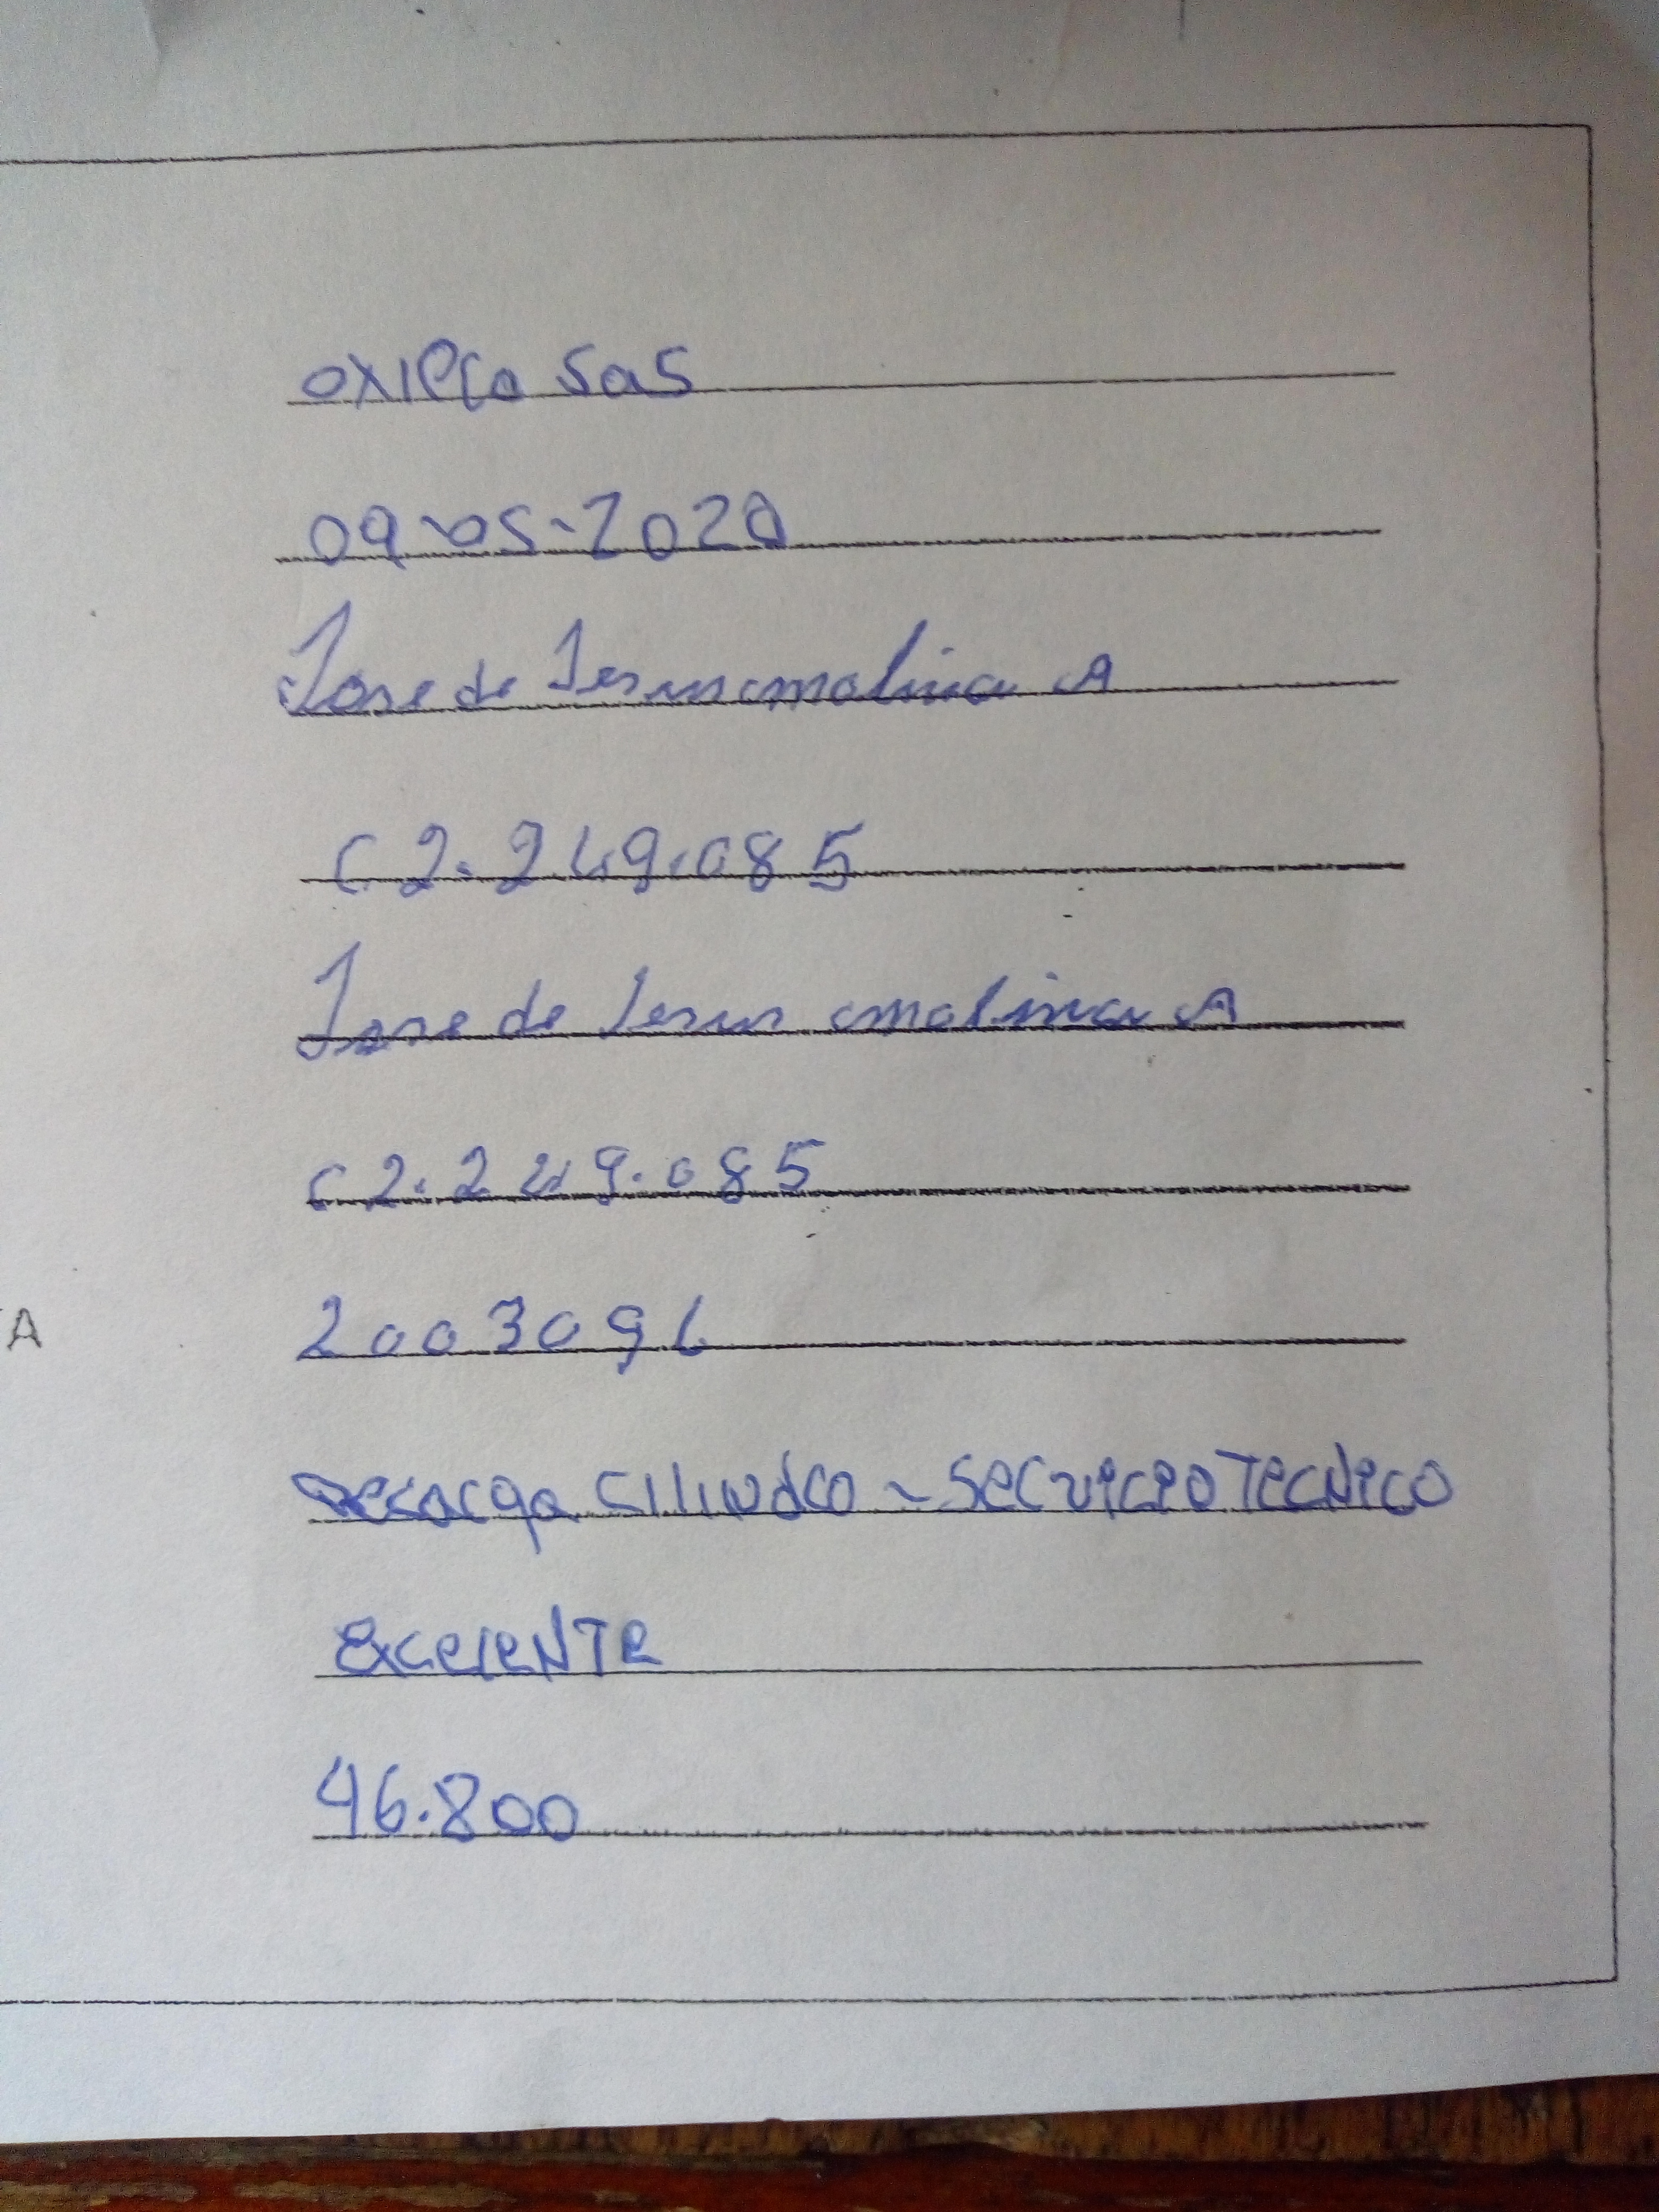 OXIPCO SaS
09-05-2020
Jose de Jesus molina A
C 2.249.085
Jose de Jesus molina A
C 2.249.085
2003096
A
Recarga Cilindro - Servicio Tecnico
Excelente
46.800